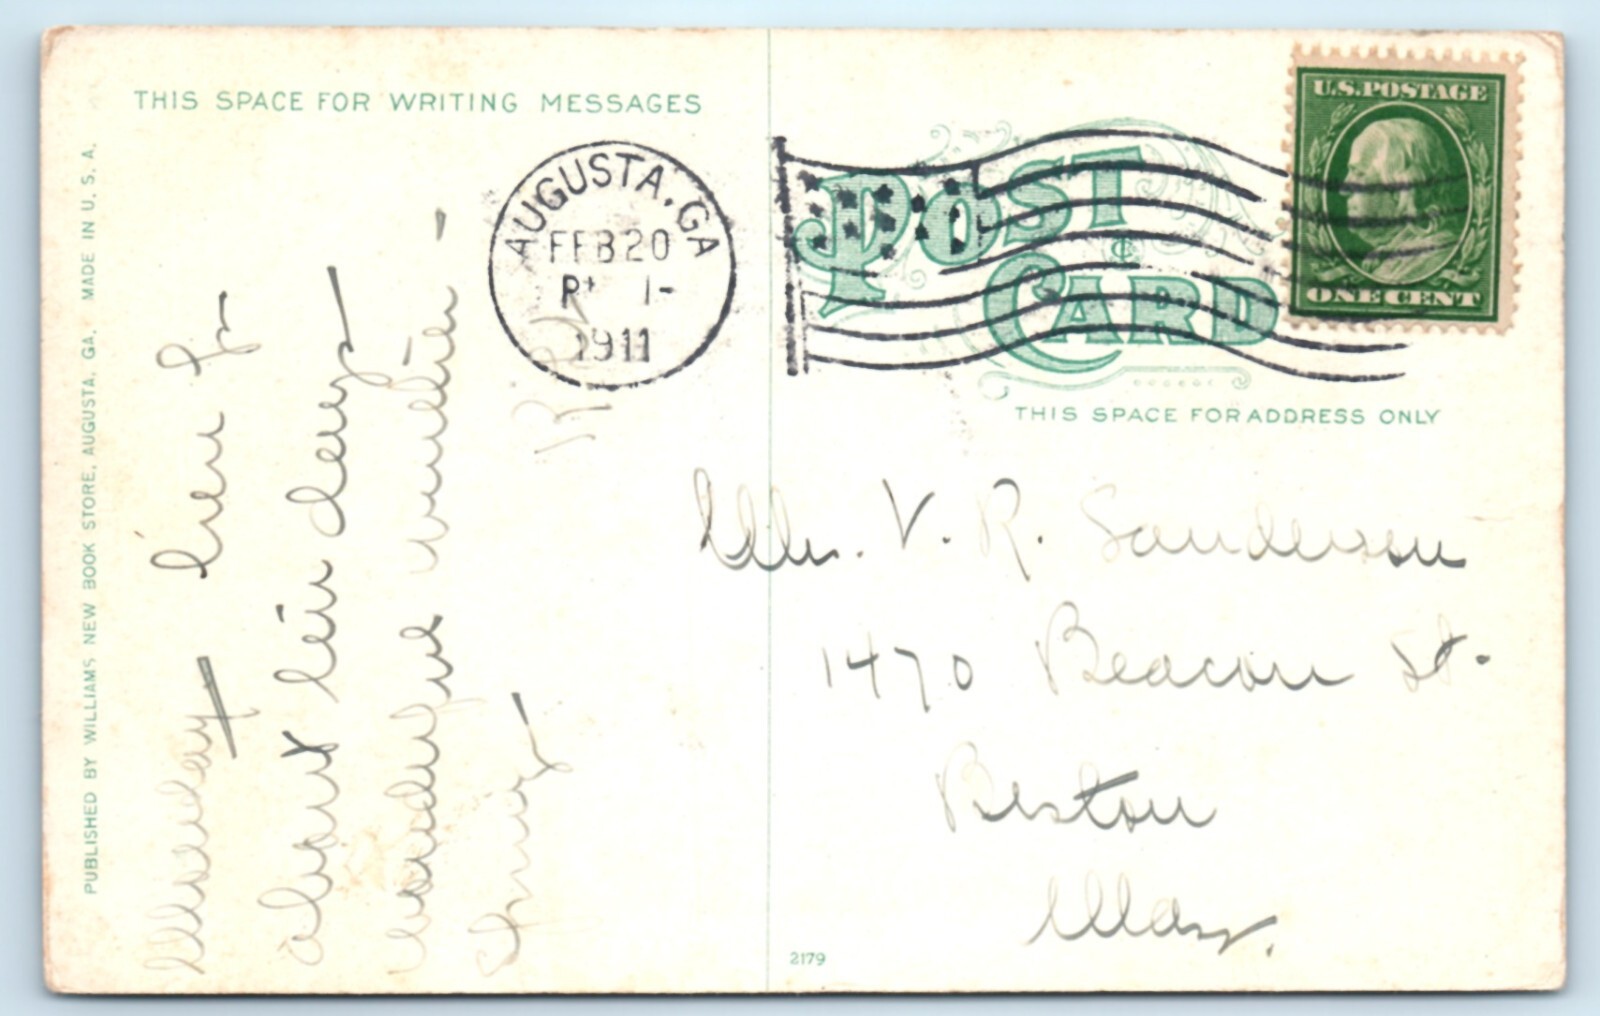 THIS SPACE FOR WRITING MESSAGES
PUBLISHED BY WILLIAMS NEW BOOK STORE, AUGUSTA, GA. MADE IN U. S. A.
AUGUSTA, GA
FEB 20
1911
U.S. POSTAGE
ONE CENT
POST CARD
THIS SPACE FOR ADDRESS ONLY
Monday
Here for
about ten days
wonderful weather
R
Mr. V. R. Sanderson
1470 Beacon St.
Boston
Mass.
2179